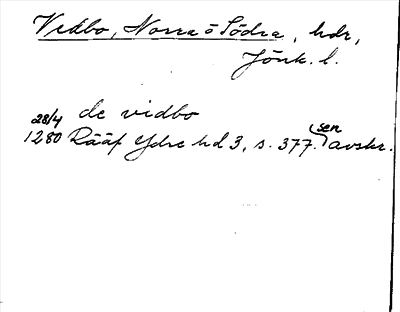 Vidbo, Norra o Södra, hdr,
Jönk. l.
28/4 de vidbo
1280 Rääf Ydre hd 3, s. 377. sen avskr.